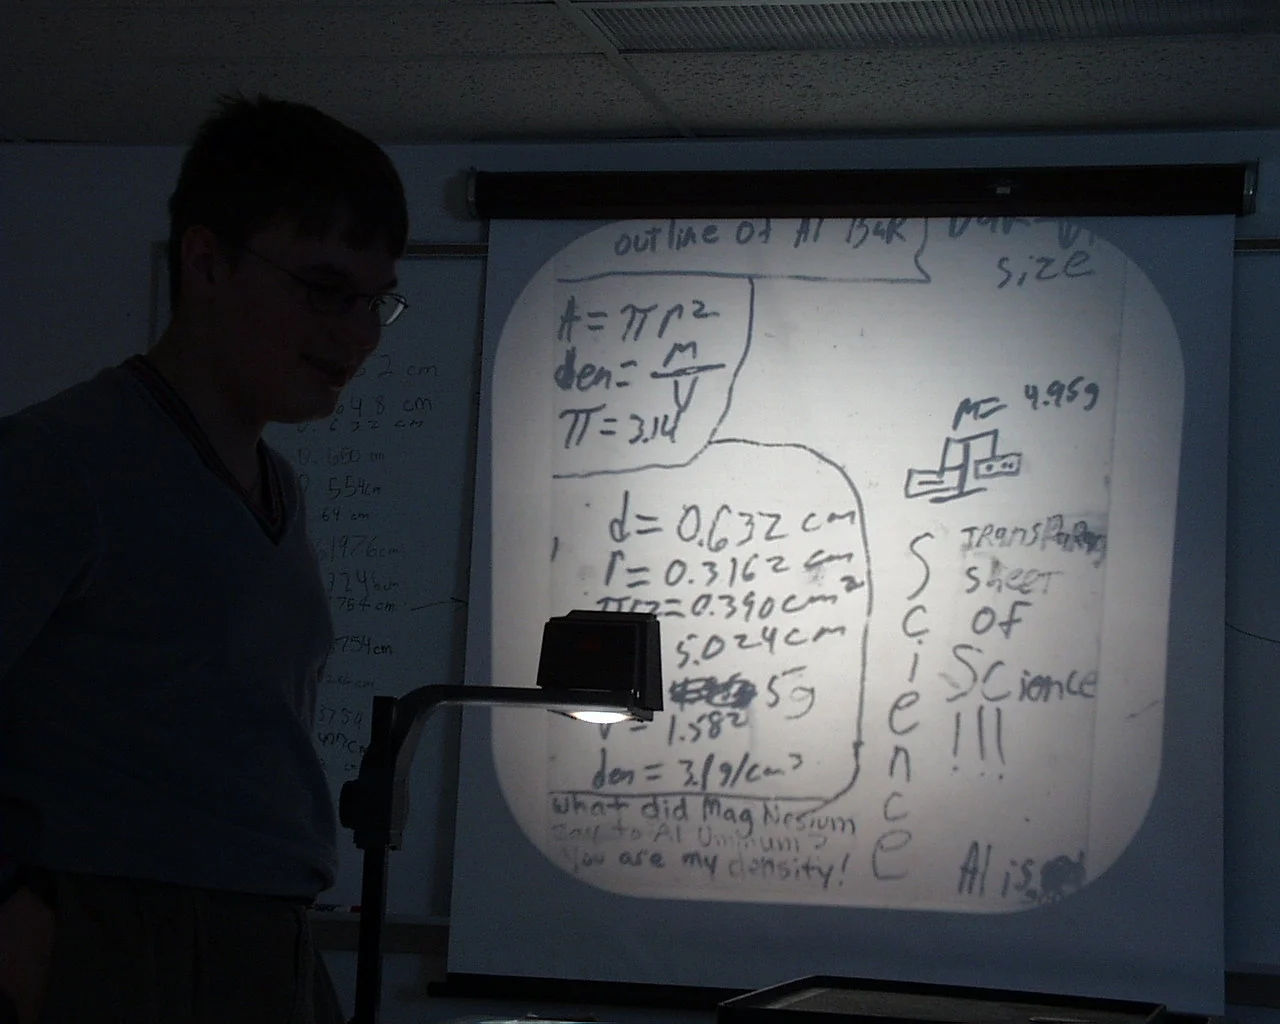 outline of Al BaR
size
A = πr²
den = M/V
π = 3.14
M= 4.95g
d = 0.632 cm
r = 0.3162 cm
πr2 = 0.390 cm²
5.024 cm
5g
V = 1.582
den = 3.1g/cm³
what did MagNesium
say to Al Uminum?
You are my density!
Science
TRansPaRency
sheeT
of
Science
!!!
Al is
2 cm
648 cm
0.632 cm
0.600 cm
554cm
.64 cm
1926cm
724cm
754 cm
754cm